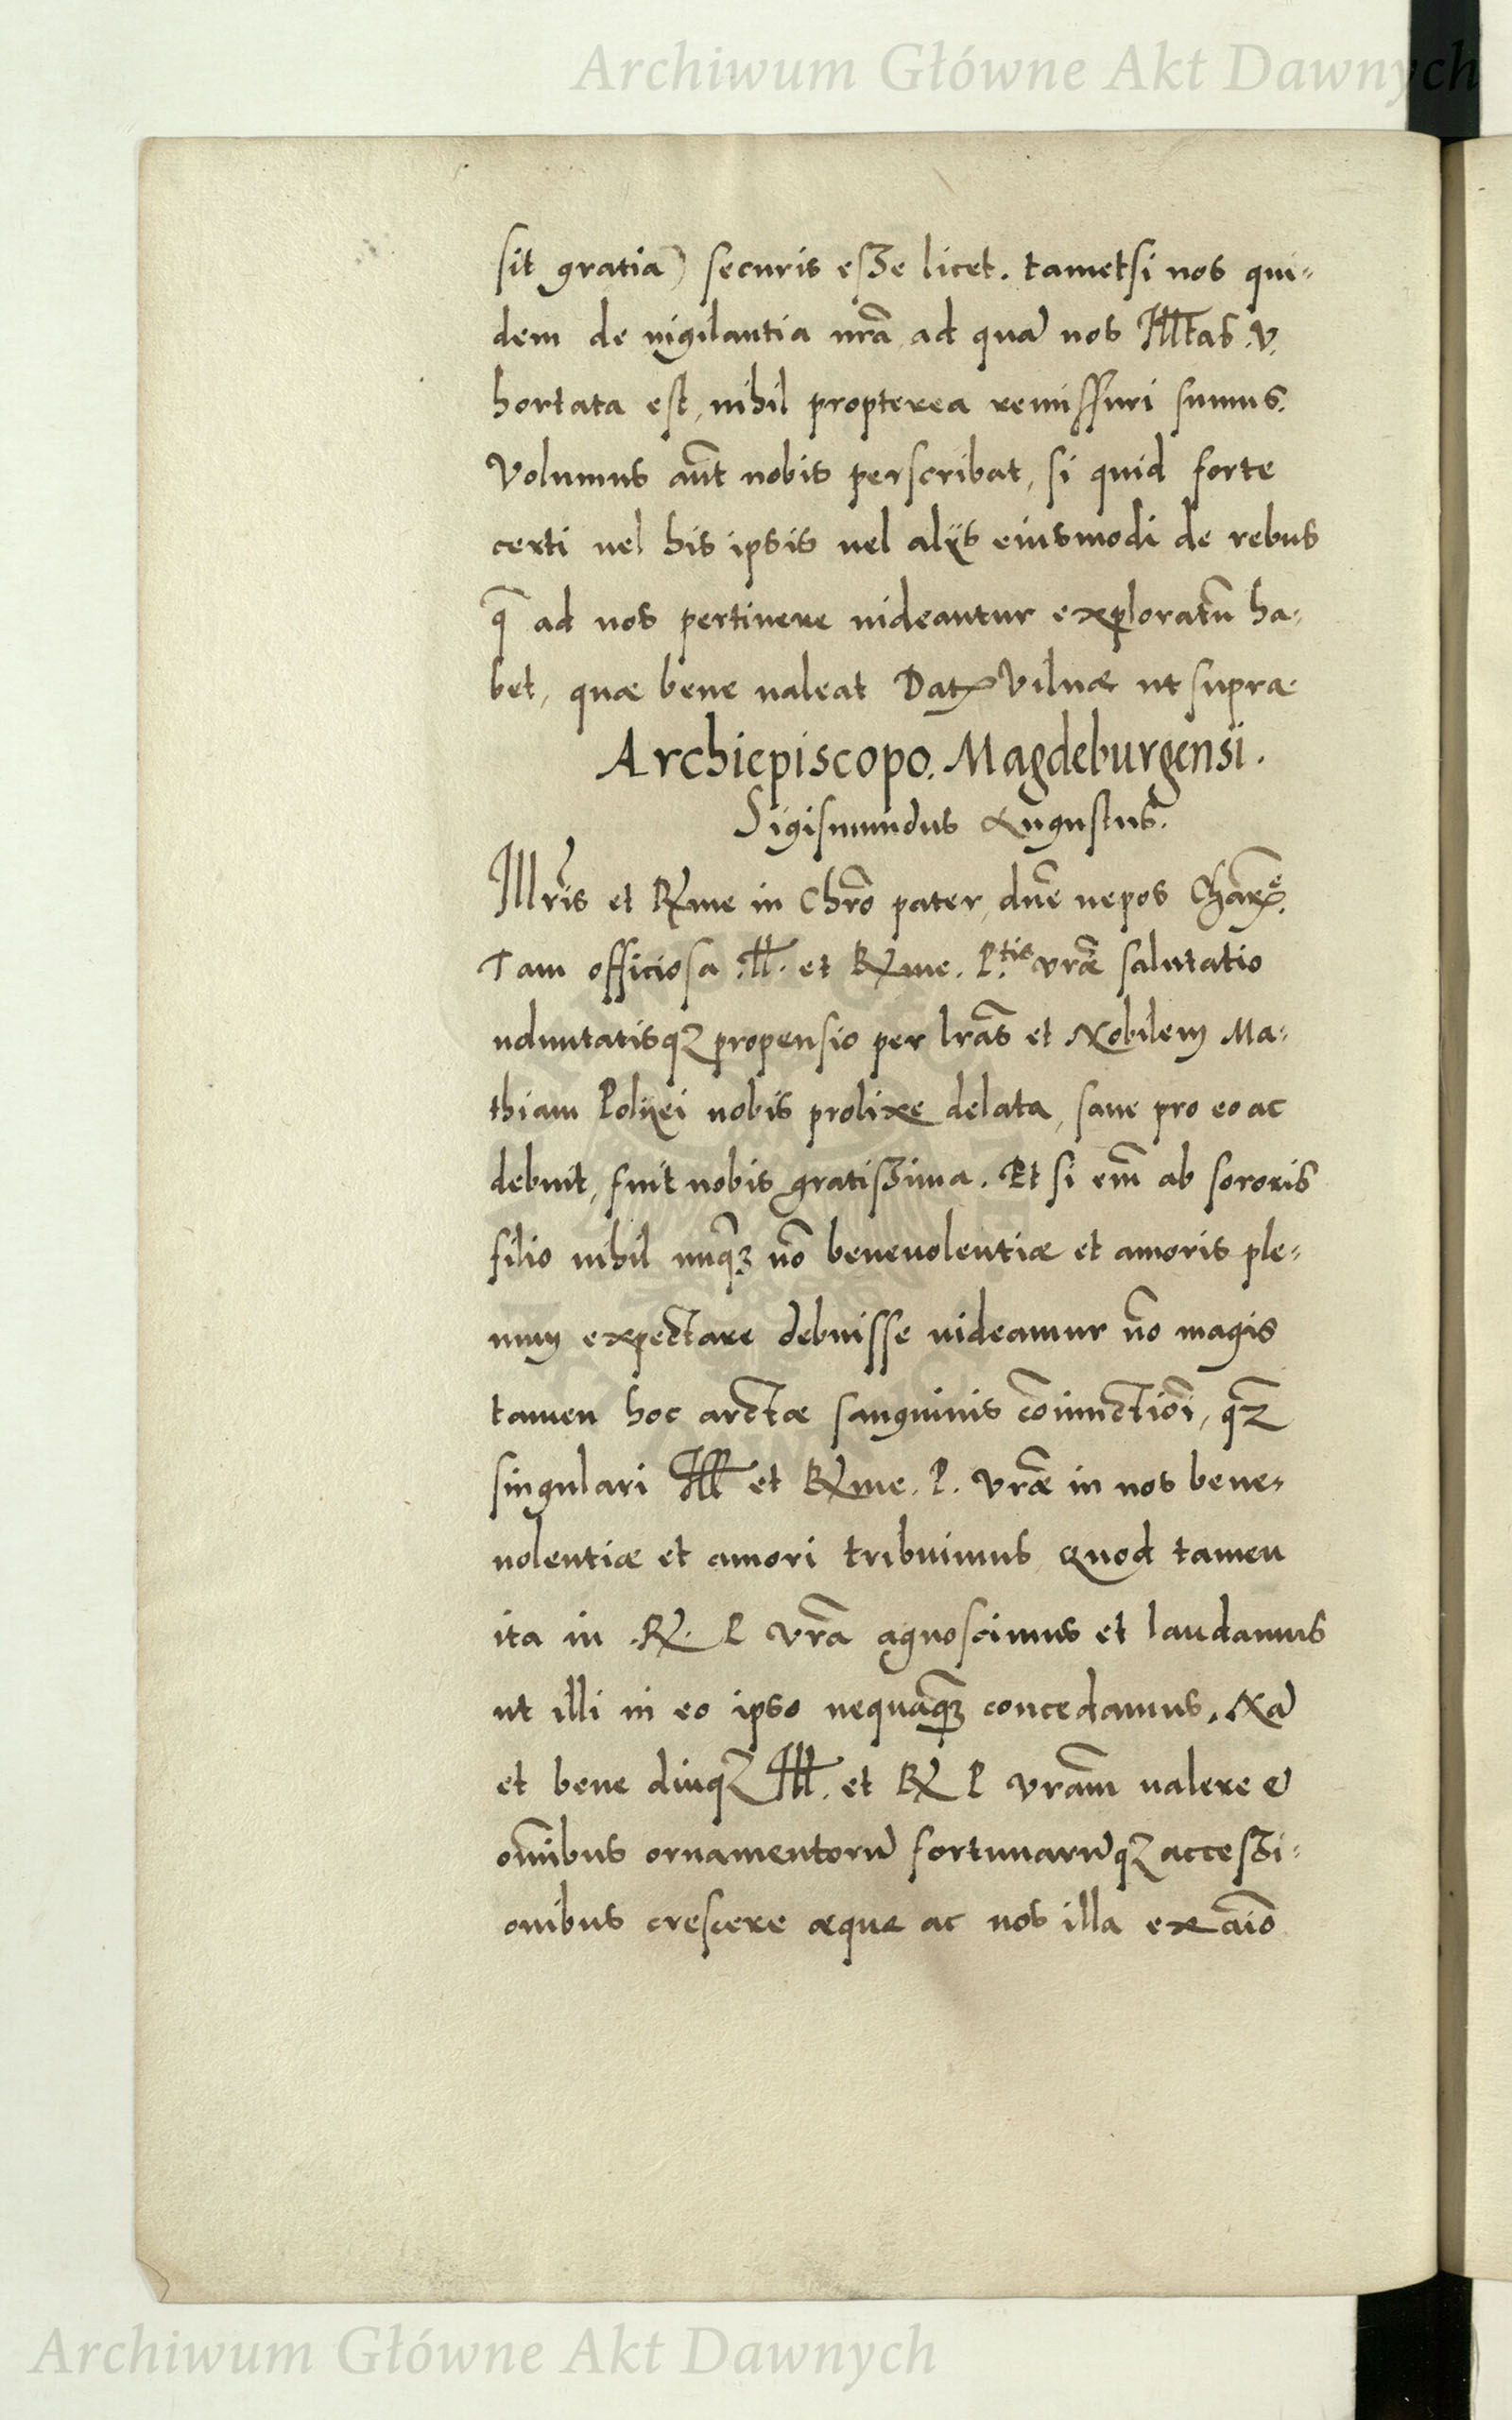 Archiwum Główne Akt Dawnych
sit gratia) securis esse licet. tametsi nos qui-
dem de uigilantia nrã, ad quã nos Illtas. V.
hortata est, nihil propterea remissuri sumus.
Volumus aũt nobis perscribat, si quid forte
certi uel his ipsis uel alijs eiusmodi de rebus
q̃ ad nos pertinere uideantur exploratũ ha-
bet, quæ bene ualeat Dat Vilnæ ut supra
Archiepiscopo. Magdeburgensi.
Sigismundus Augustus.
Illris et Rme in Chrõ pater, dnẽ nepos Chare.
Tam officiosa Ill. et Rme. P.tis vræ̃ salutatio
uoluntatisq; propensio per lrãs et Nobilem Ma-
thiam nobis prolixe delata, sane pro eo ac
debuit, fuit nobis gratissima. Et si em̃ ab sororis
filio nihil unq̃ȝ nõ beneuolentiæ et amoris ple-
num expectare debuisse uideamur nõ magis
tamen hoc arctæ sanguinis cõiunctiõi, q̃ȝ
singulari Ill et Rme. P. vræ̃ in nos bene-
uolentiæ et amori tribuimus quod tamen
ita in .R. P vrã agnoscimus et laudamus
ut illi in eo ipso nequaq̃ȝ concedamus. Nã
et bene diuq; Ill. et R P vrãm ualere &
om̃ibus ornamentorũ fortunarũq; accessi-
onibus crescere æque ac nos illa ex aĩo
Archiwum Główne Akt Dawnych